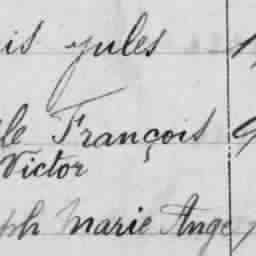 is Jules
le François 9
Victor
ph Marie Ange